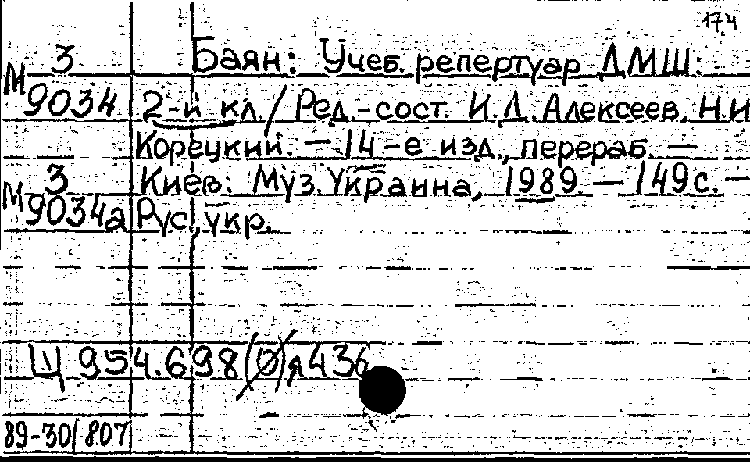 174
М 3 Баян: Учеб. репертуар ДМШ:
9034 2-й кл./ Ред.-сост. И.Д. Алексеев, Н.И
Корецкий. — 14-е изд., перераб. —
М 3 Киев: Муз. Украина, 1989. — 149 с. —
9034а Рус., укр.
Щ 954.698(0)я436
89-30/807